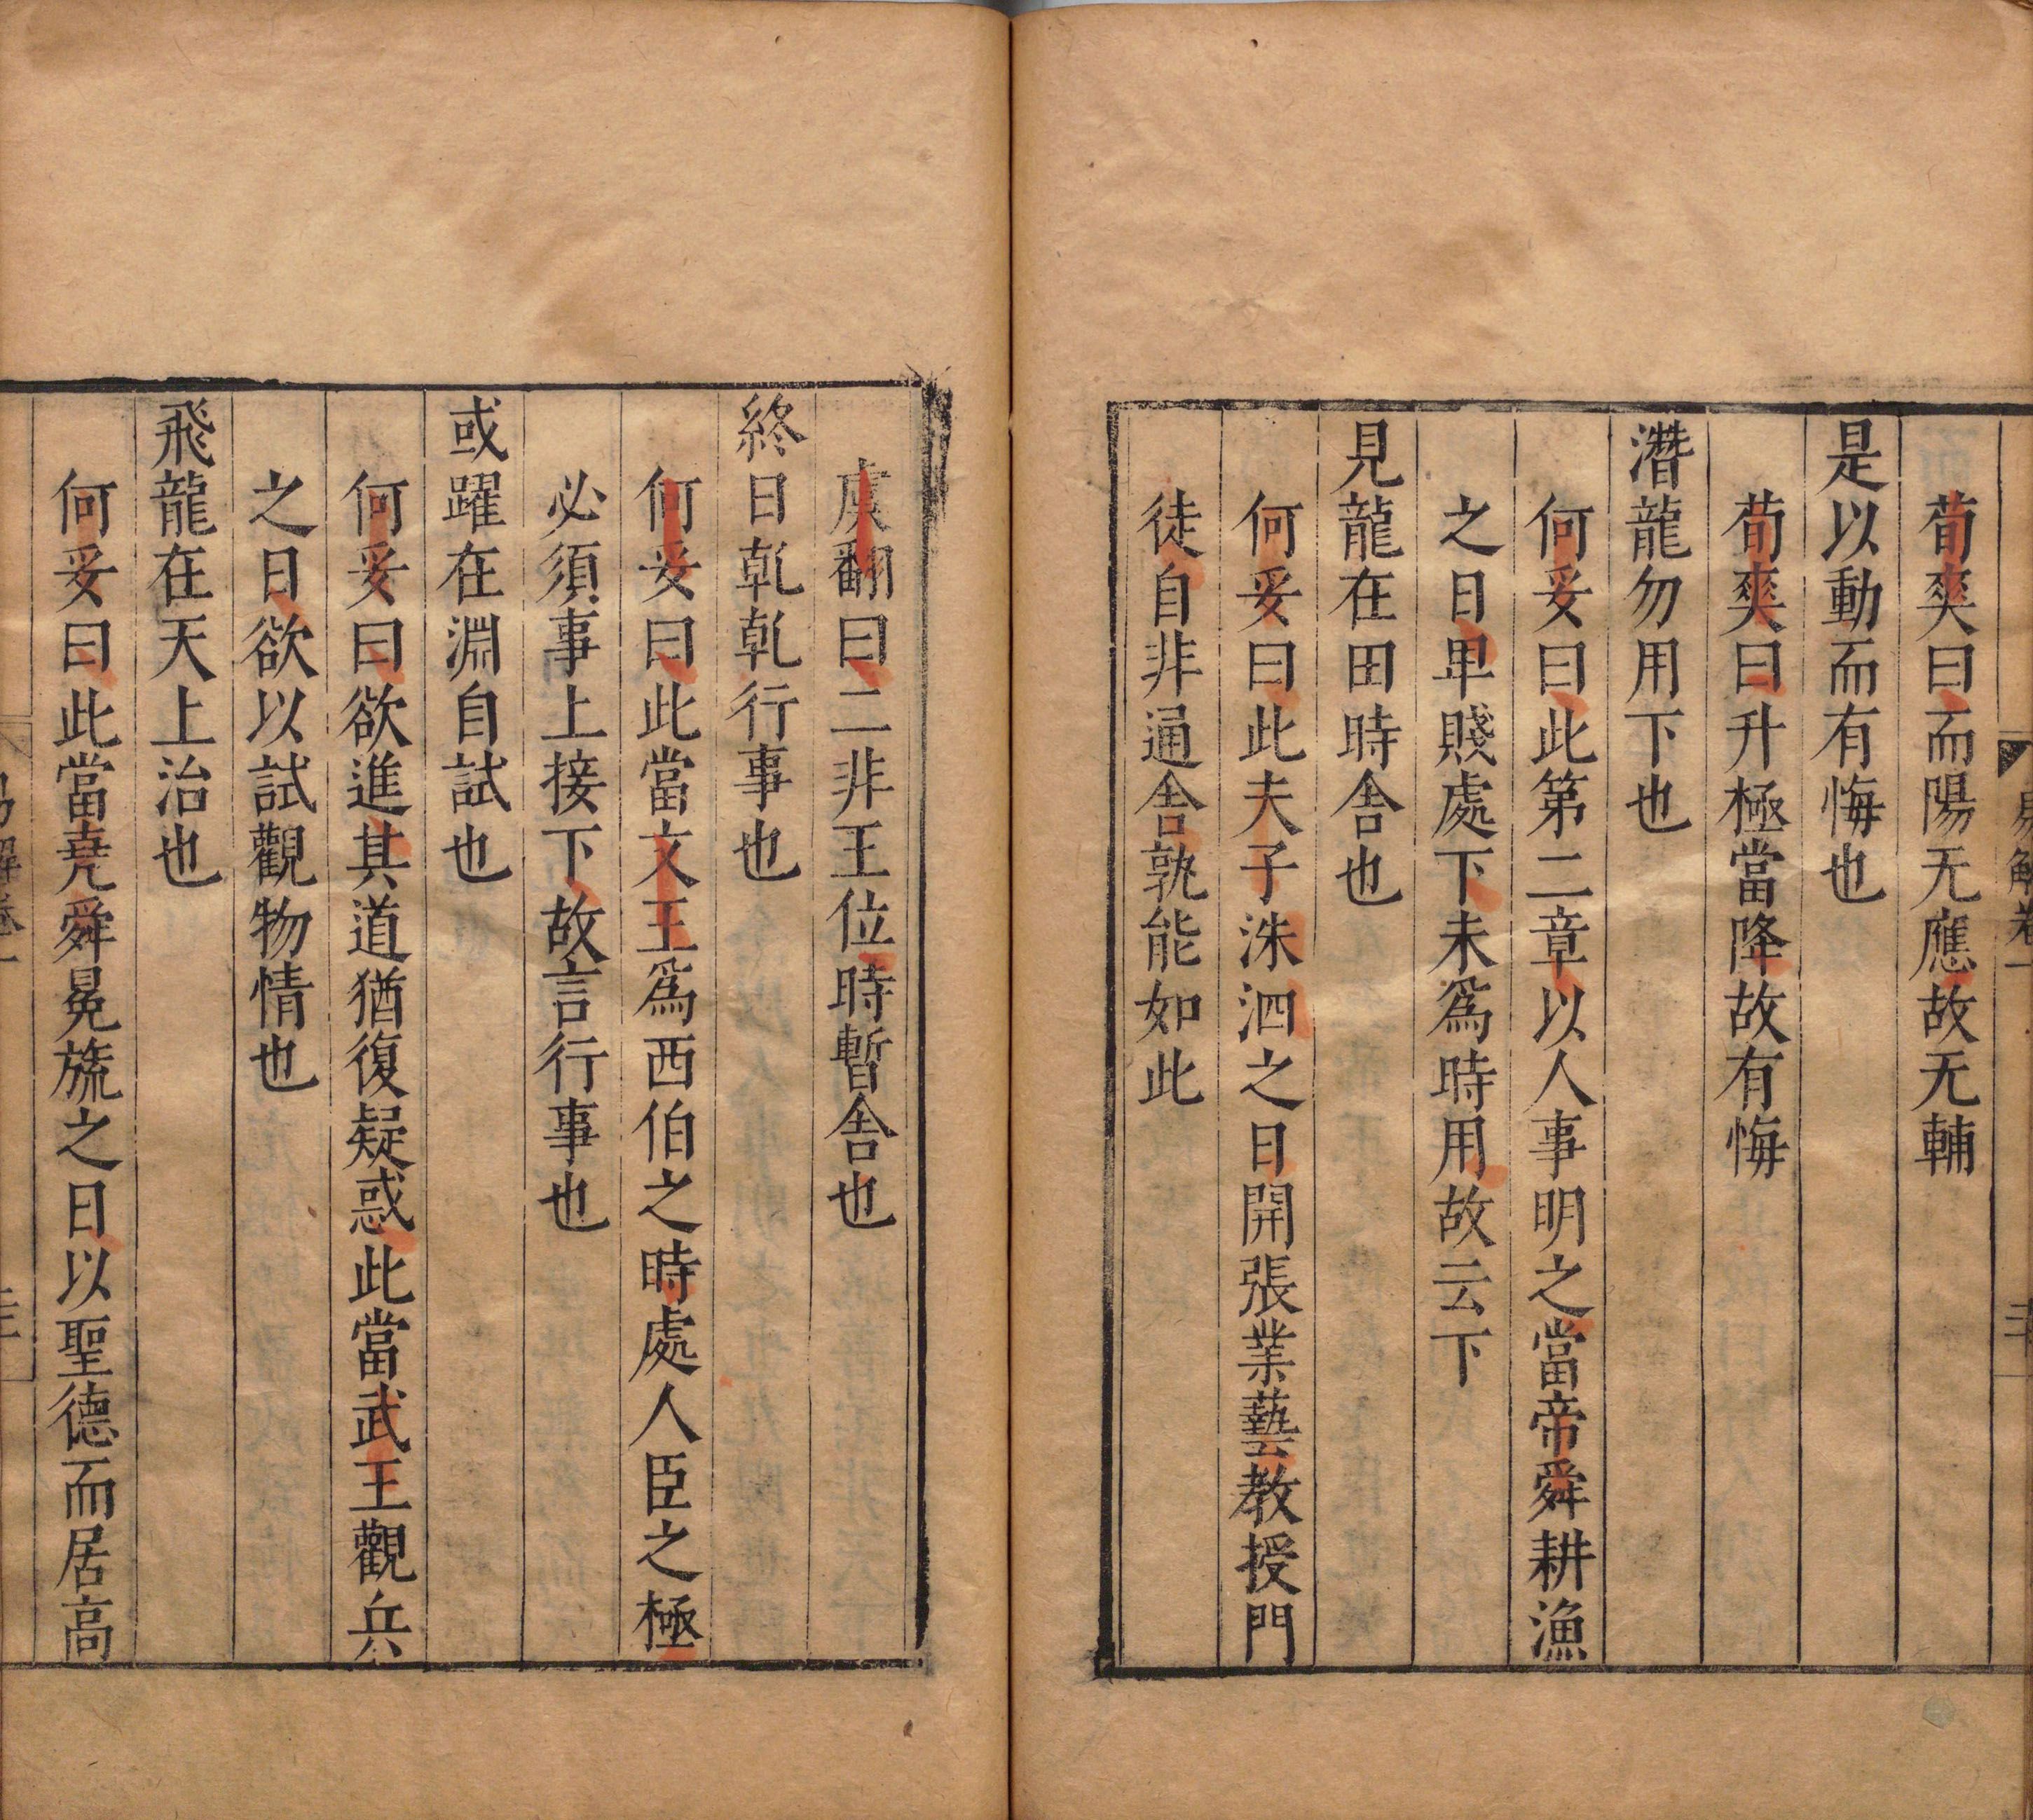 易解卷一
荀爽曰而陽无應故无輔
是以動而有悔也
荀爽曰升極當降故有悔
潛龍勿用下也
何妥曰此第二章以人事明之當帝舜耕漁
之日卑賤處下未爲時用故云下
見龍在田時舍也
何妥曰此夫子洙泗之日開張業藝教授門
徒自非通舍孰能如此
虞翻曰二非王位時暫舍也
終日乾乾行事也
何妥曰此當文王爲西伯之時處人臣之極
必須事上接下故言行事也
或躍在淵自試也
何妥曰欲進其道猶復疑惑此當武王觀兵
之日欲以試觀物情也
飛龍在天上治也
何妥曰此當堯舜冕旒之日以聖德而居高
易解卷一